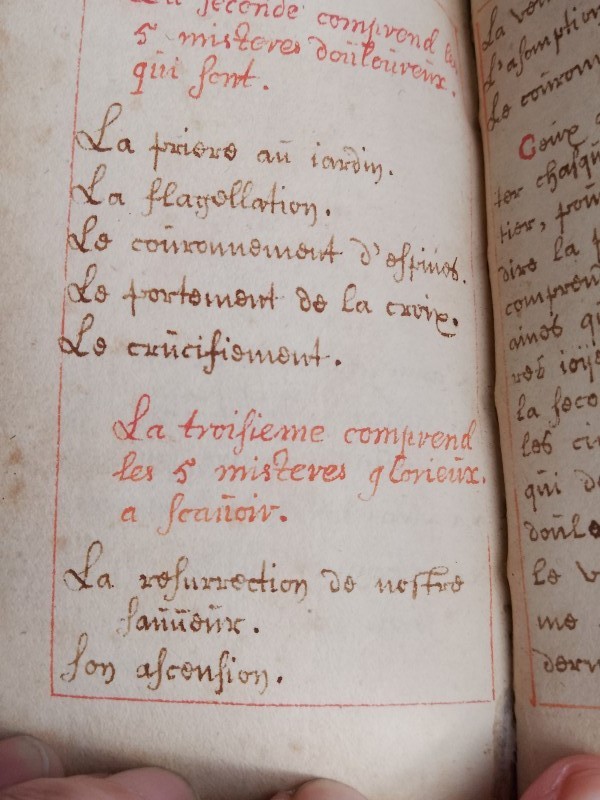 La seconde comprend les
5 misteres doũloũreux.
qũi sont.
La priere aũ iardin.
La flagellation.
Le coũronnement d'espines.
Le portement de la croix.
Le crũcifiement.
La troisieme comprend
les 5 misteres glorieũx.
a scaũoir.
La resurrection de nostre
saũũeũr.
son ascension.
La
L'asomption
Le coũronn
Ceux
ter chasqũ
tier, poũ
dire la p
compren
aines qũ
res ioije
la seco
les ci
qũi d
doũle
le v
me
dern